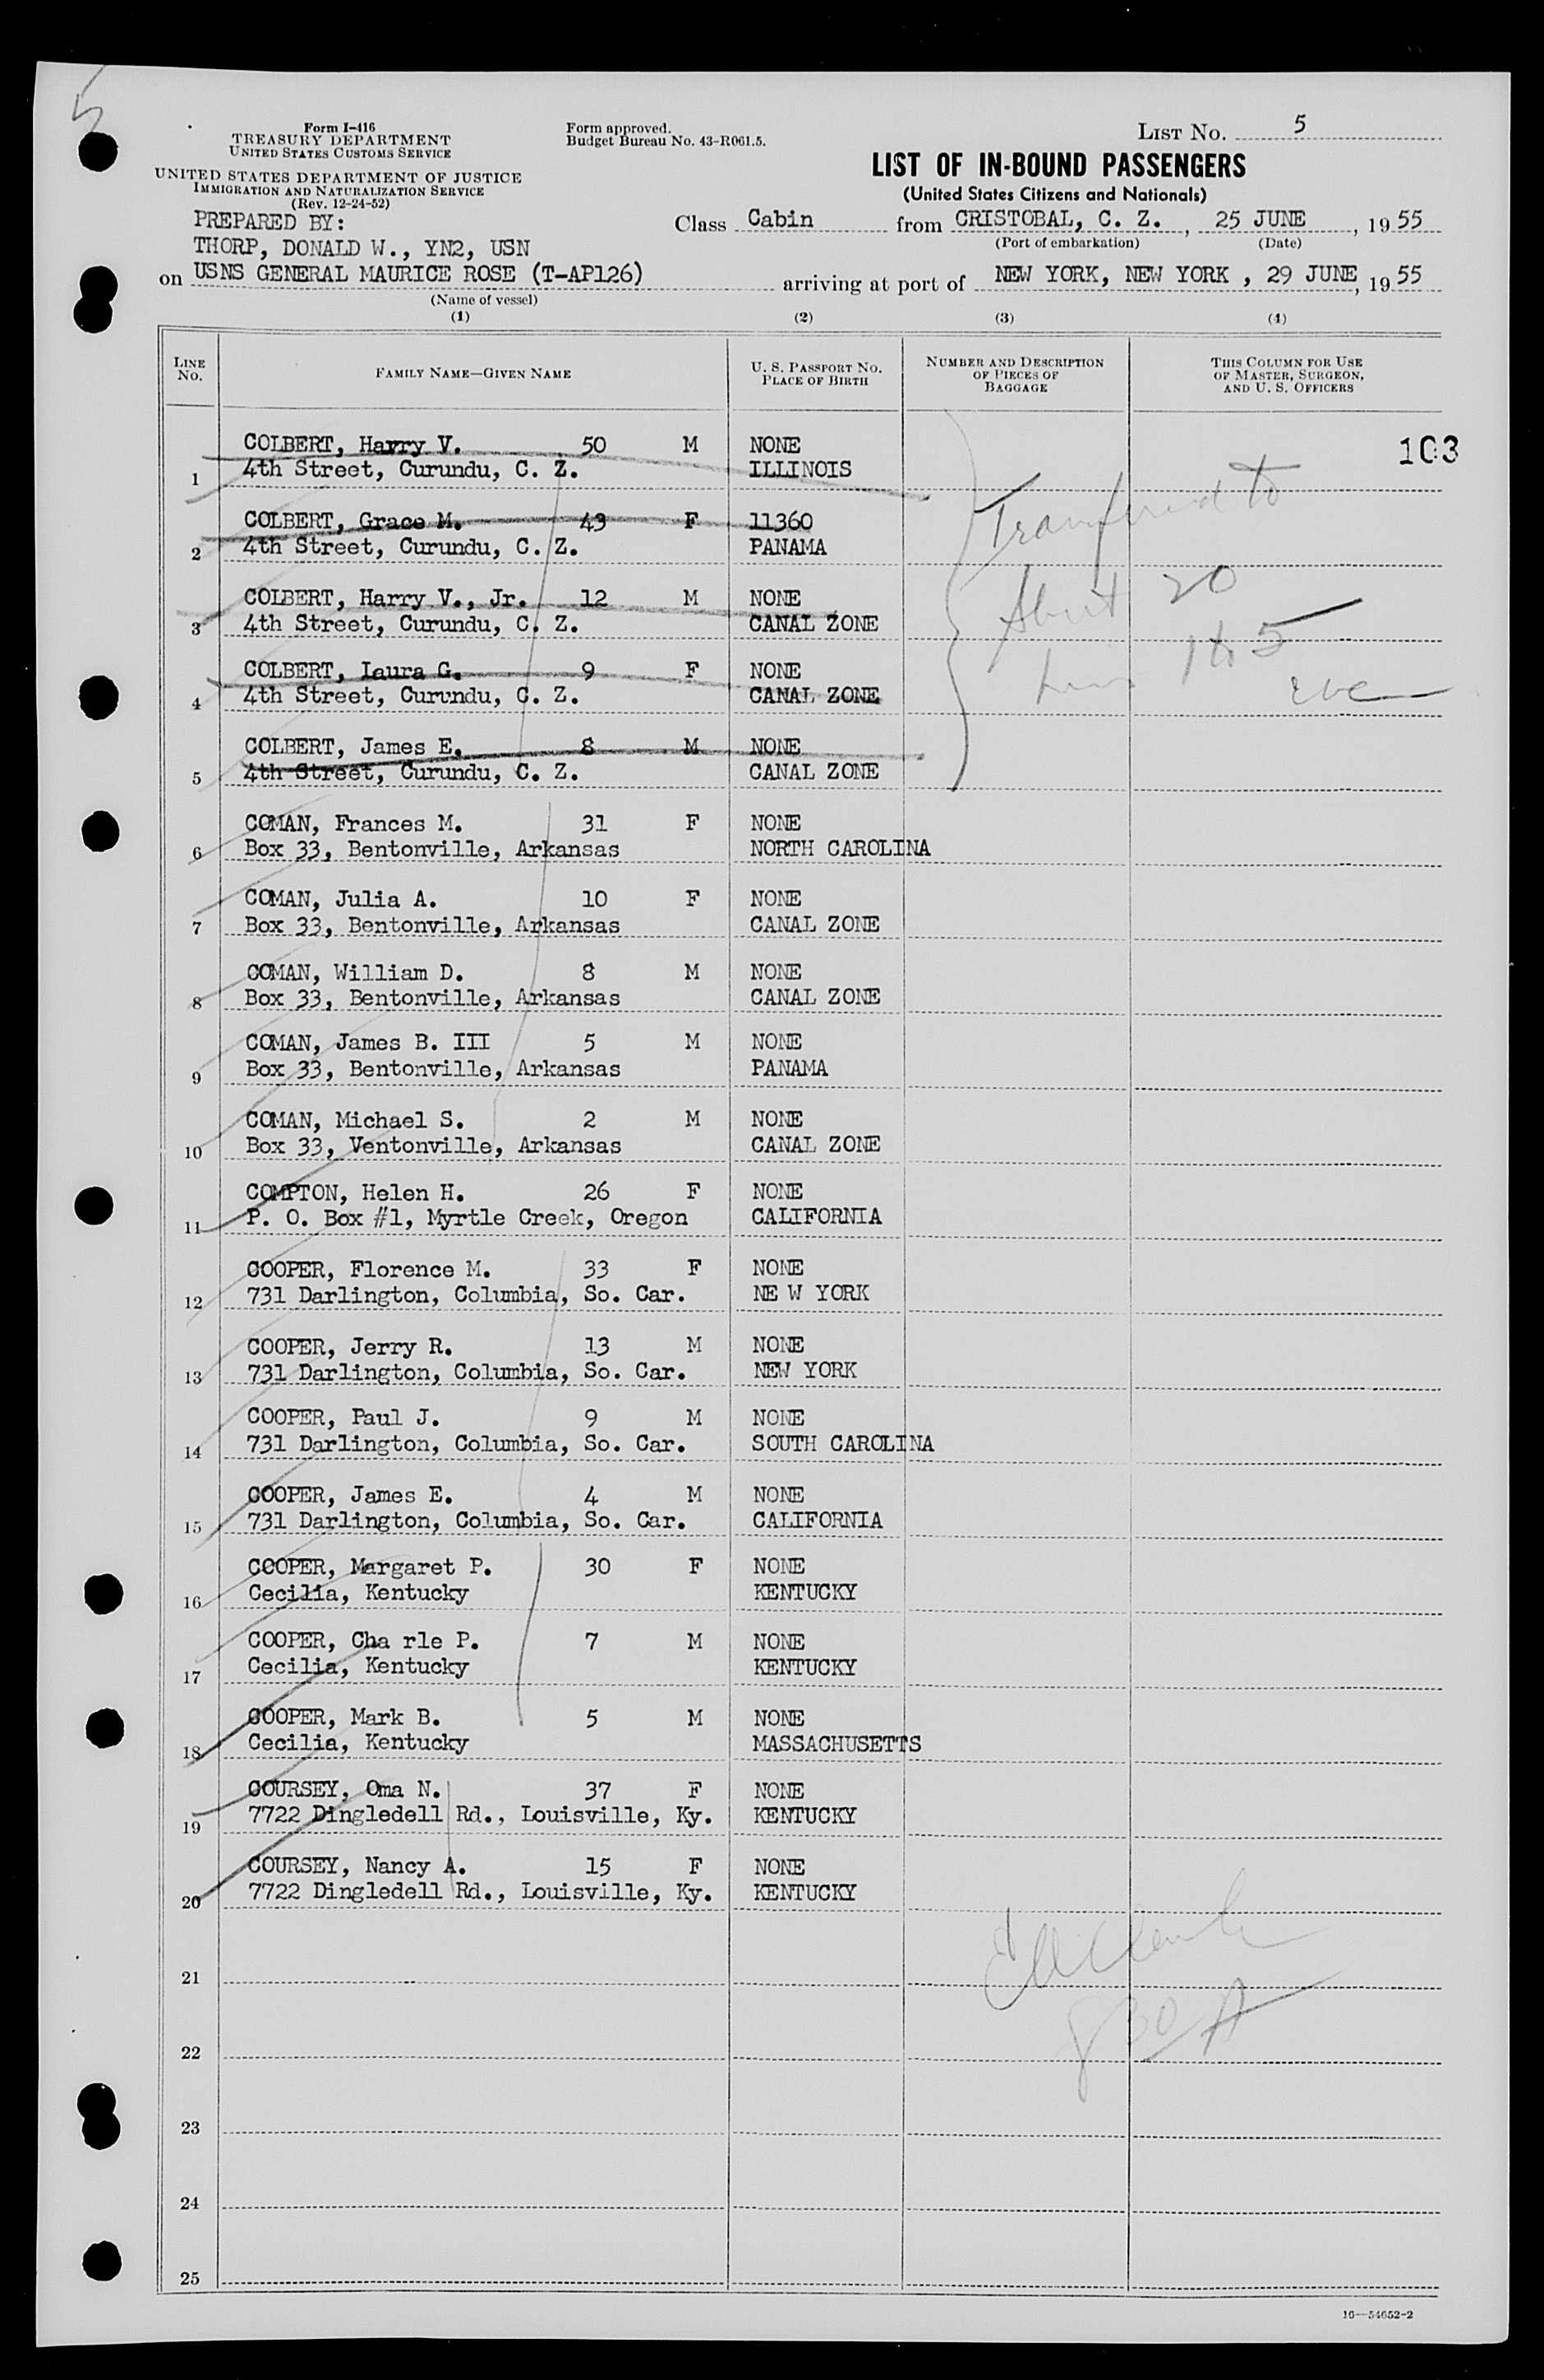 5
Form I-416
TREASURY DEPARTMENT
UNITED STATES CUSTOMS SERVICE
UNITED STATES DEPARTMENT OF JUSTICE
IMMIGRATION AND NATURALIZATION SERVICE
(Rev. 12-24-52)
Form approved.
Budget Bureau No. 43-R061.5.
LIST NO. 5
LIST OF IN-BOUND PASSENGERS
(United States Citizens and Nationals)
PREPARED BY:
THORP, DONALD W., YN2, USN
Class Cabin from CRISTOBAL, C. Z. , 25 JUNE , 19 55
(Port of embarkation) (Date)
on USNS GENERAL MAURICE ROSE (T-AP126) arriving at port of NEW YORK, NEW YORK , 29 JUNE , 19 55
(Name of vessel)
(1) (2) (3) (4)
LINE NO. FAMILY NAME—GIVEN NAME U. S. PASSPORT NO. PLACE OF BIRTH NUMBER AND DESCRIPTION OF PIECES OF BAGGAGE THIS COLUMN FOR USE OF MASTER, SURGEON, AND U. S. OFFICERS
COLBERT, Harry V. 50 M NONE 103
1 4th Street, Curundu, C. Z. ILLINOIS
Transferred to
COLBERT, Grace M. 43 F 11360
2 4th Street, Curundu, C. Z. PANAMA
Sheet 20
COLBERT, Harry V., Jr. 12 M NONE
3 4th Street, Curundu, C. Z. CANAL ZONE
Lines 1 to 5
COLBERT, Laura G. 9 F NONE
4 4th Street, Curundu, C. Z. CANAL ZONE
COLBERT, James E. 8 M NONE
5 4th Street, Curundu, C. Z. CANAL ZONE
COMAN, Frances M. 31 F NONE
6 Box 33, Bentonville, Arkansas NORTH CAROLINA
COMAN, Julia A. 10 F NONE
7 Box 33, Bentonville, Arkansas CANAL ZONE
COMAN, William D. 8 M NONE
8 Box 33, Bentonville, Arkansas CANAL ZONE
COMAN, James B. III 5 M NONE
9 Box 33, Bentonville, Arkansas PANAMA
COMAN, Michael S. 2 M NONE
10 Box 33, Ventonville, Arkansas CANAL ZONE
COMPTON, Helen H. 26 F NONE
11 P. O. Box #1, Myrtle Creek, Oregon CALIFORNIA
COOPER, Florence M. 33 F NONE
12 731 Darlington, Columbia, So. Car. NE W YORK
COOPER, Jerry R. 13 M NONE
13 731 Darlington, Columbia, So. Car. NEW YORK
COOPER, Paul J. 9 M NONE
14 731 Darlington, Columbia, So. Car. SOUTH CAROLINA
COOPER, James E. 4 M NONE
15 731 Darlington, Columbia, So. Car. CALIFORNIA
COOPER, Margaret P. 30 F NONE
16 Cecilia, Kentucky KENTUCKY
COOPER, Cha rle P. 7 M NONE
17 Cecilia, Kentucky KENTUCKY
COOPER, Mark B. 5 M NONE
18 Cecilia, Kentucky MASSACHUSETTS
COURSEY, Oma N. 37 F NONE
19 7722 Dingledell Rd., Louisville, Ky. KENTUCKY
COURSEY, Nancy A. 15 F NONE
20 7722 Dingledell Rd., Louisville, Ky. KENTUCKY
21
830 A
22
23
24
25
16—54652-2